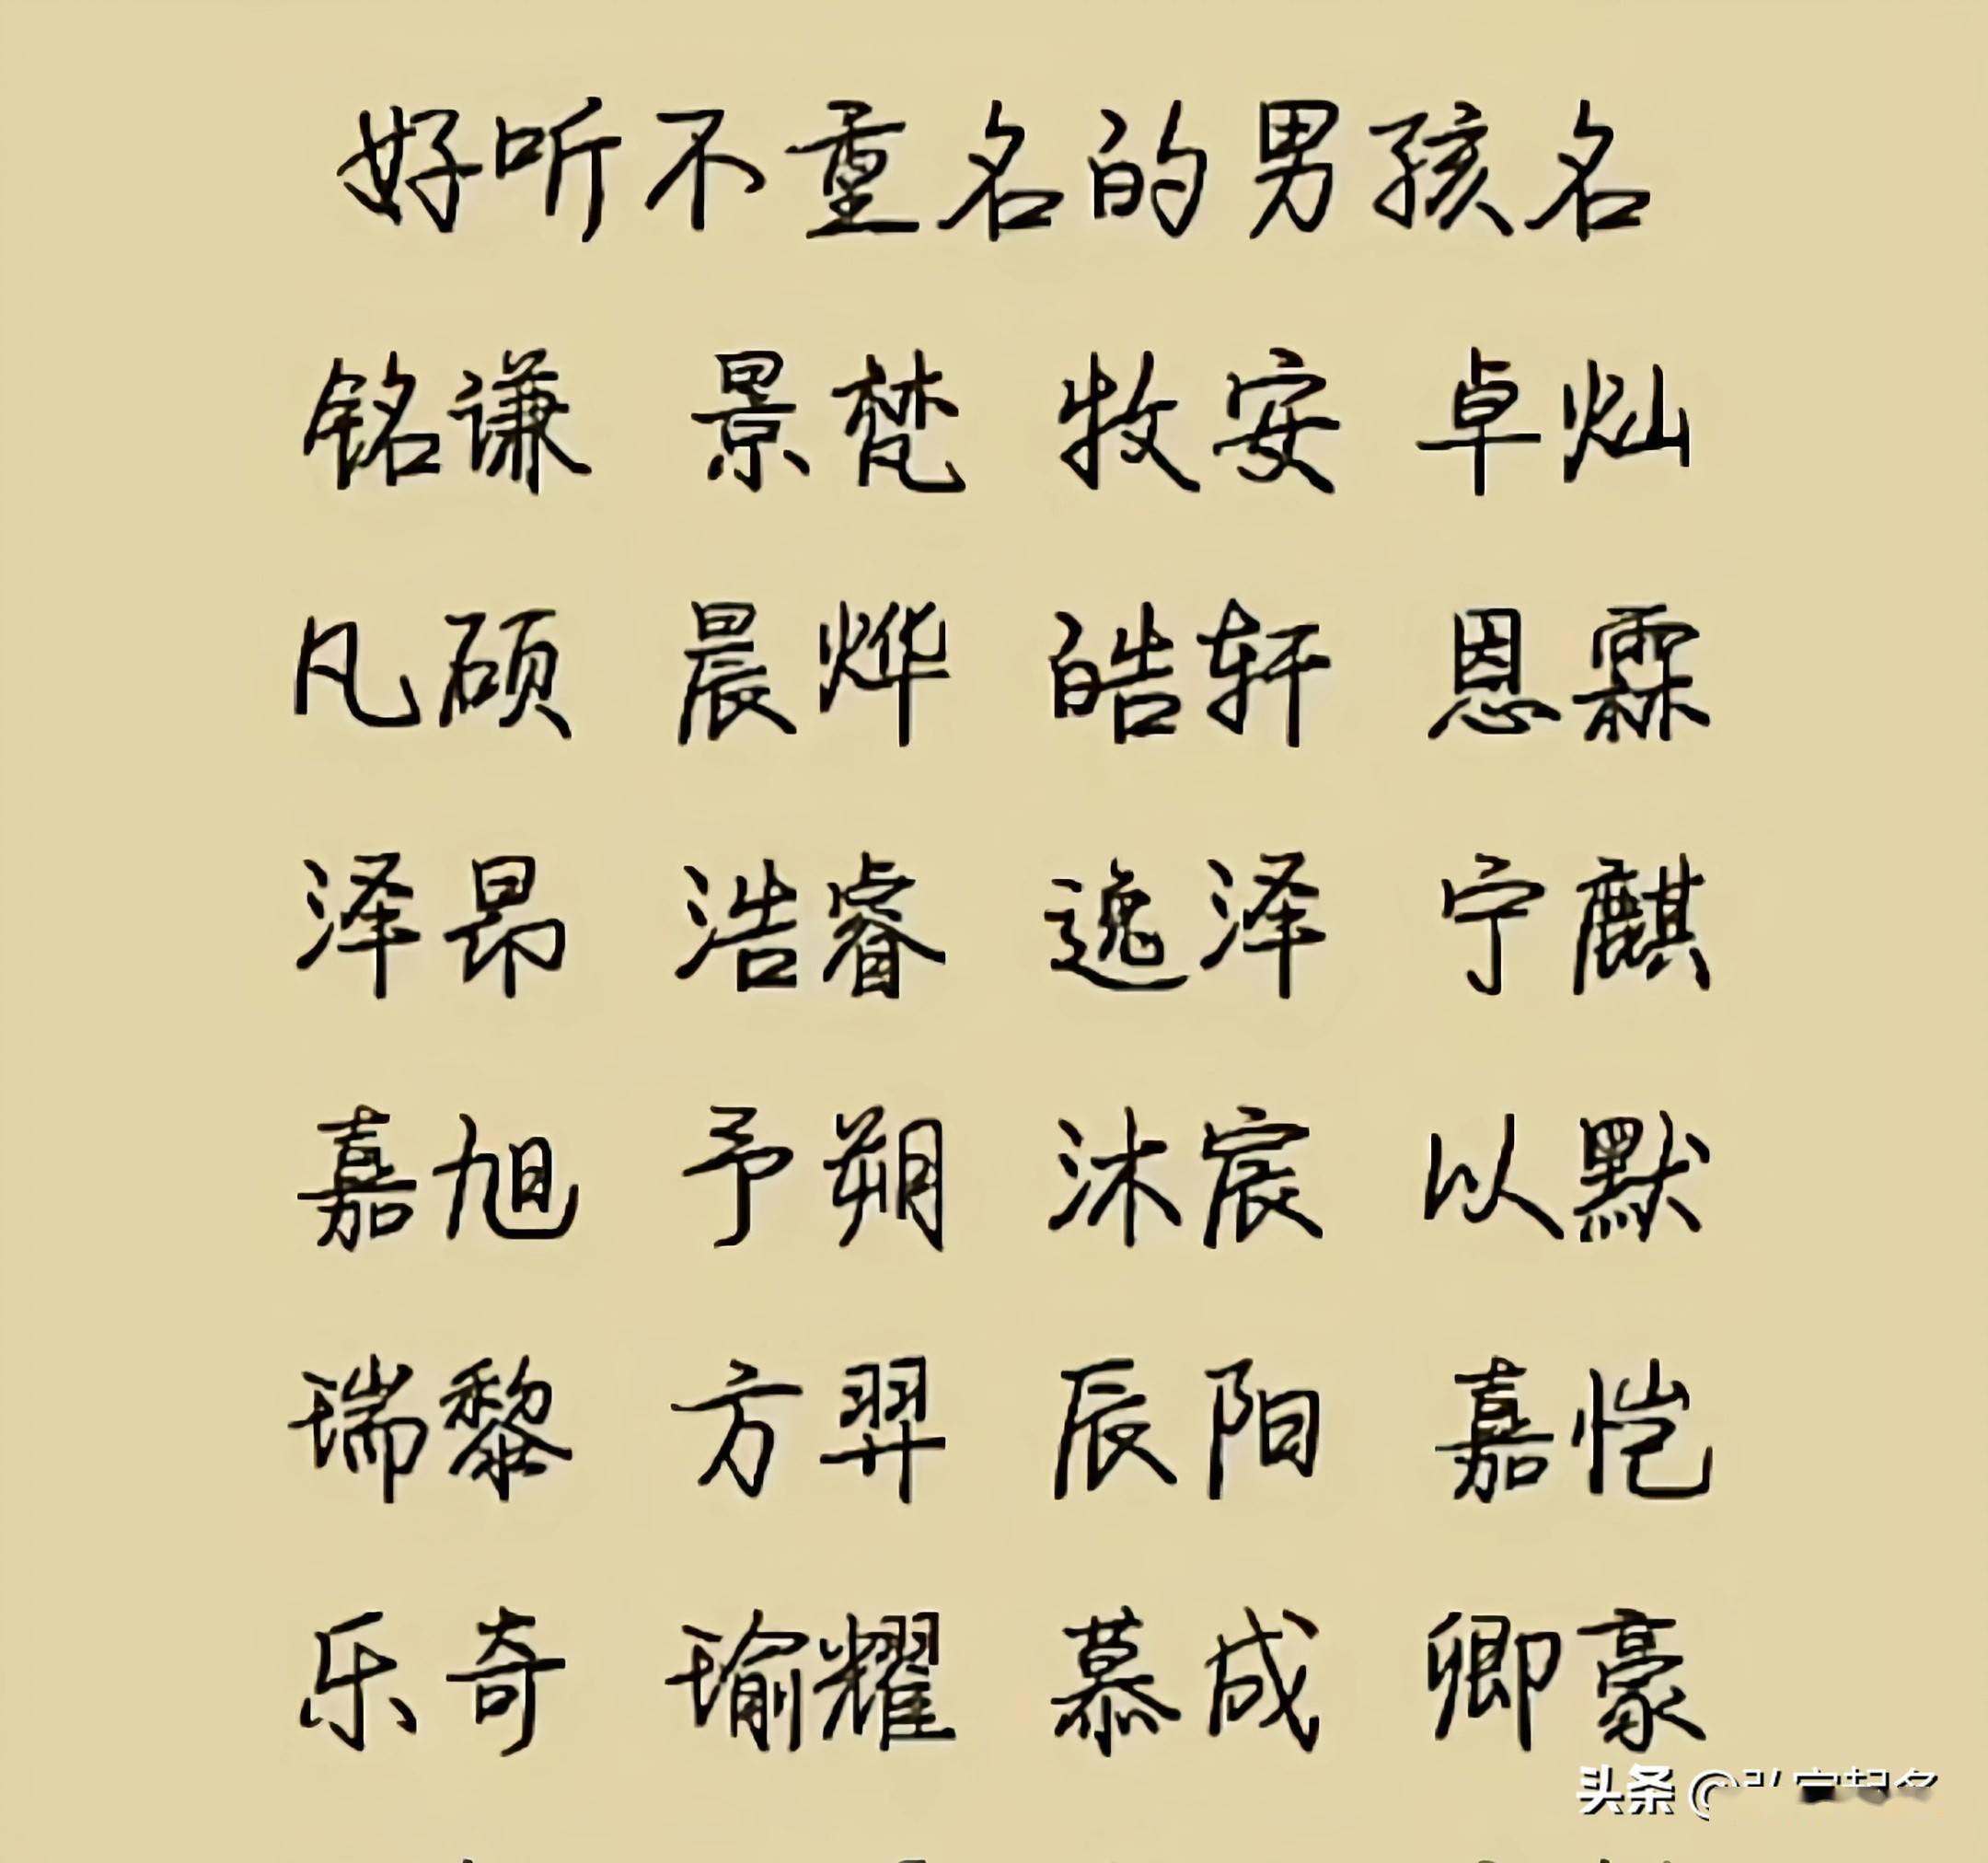 好听不重名的男孩名
铭谦 景梵 牧安 卓灿
凡硕 晨烨 皓轩 恩霖
泽昂 浩睿 逸泽 宁麒
嘉旭 予朔 沐宸 以默
瑞黎 方羿 辰阳 嘉恺
乐奇 瑜耀 慕成 卿豪
头条 @